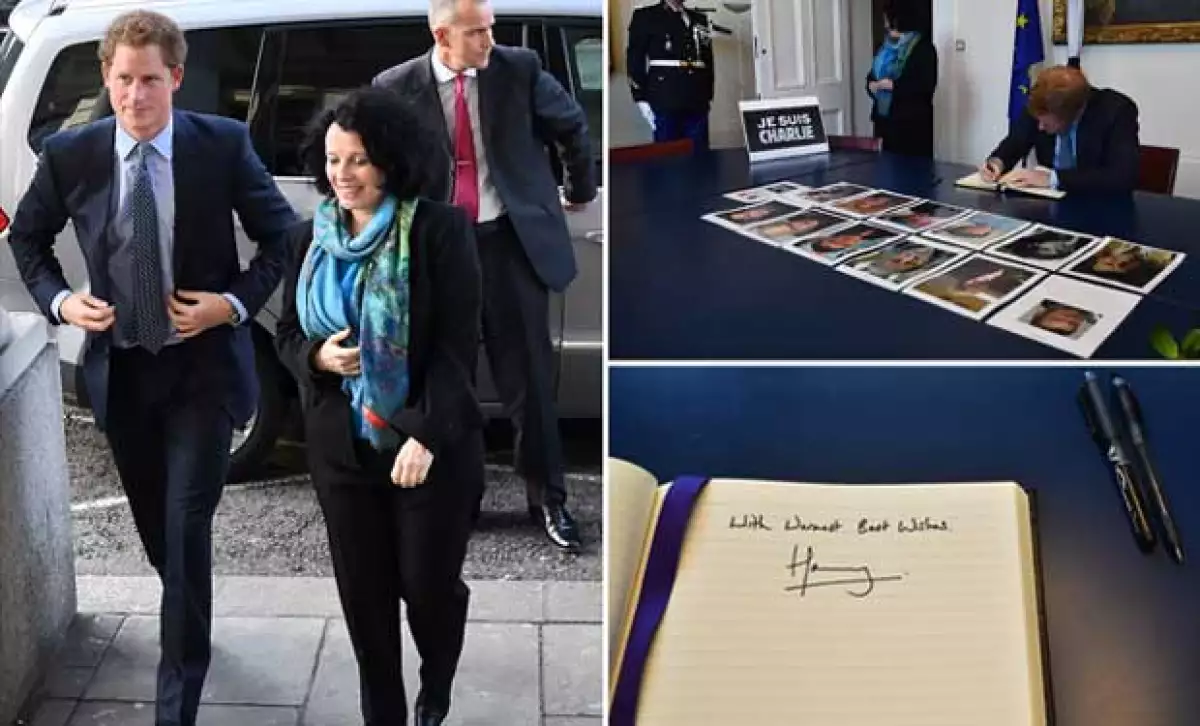 JE SUIS
CHARLIE
With Warmest Best Wishes
Harry